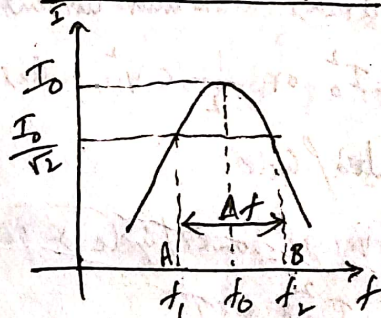 I
I₀
I₀/√2
Δf
A B
f₁ f₀ f₂ f